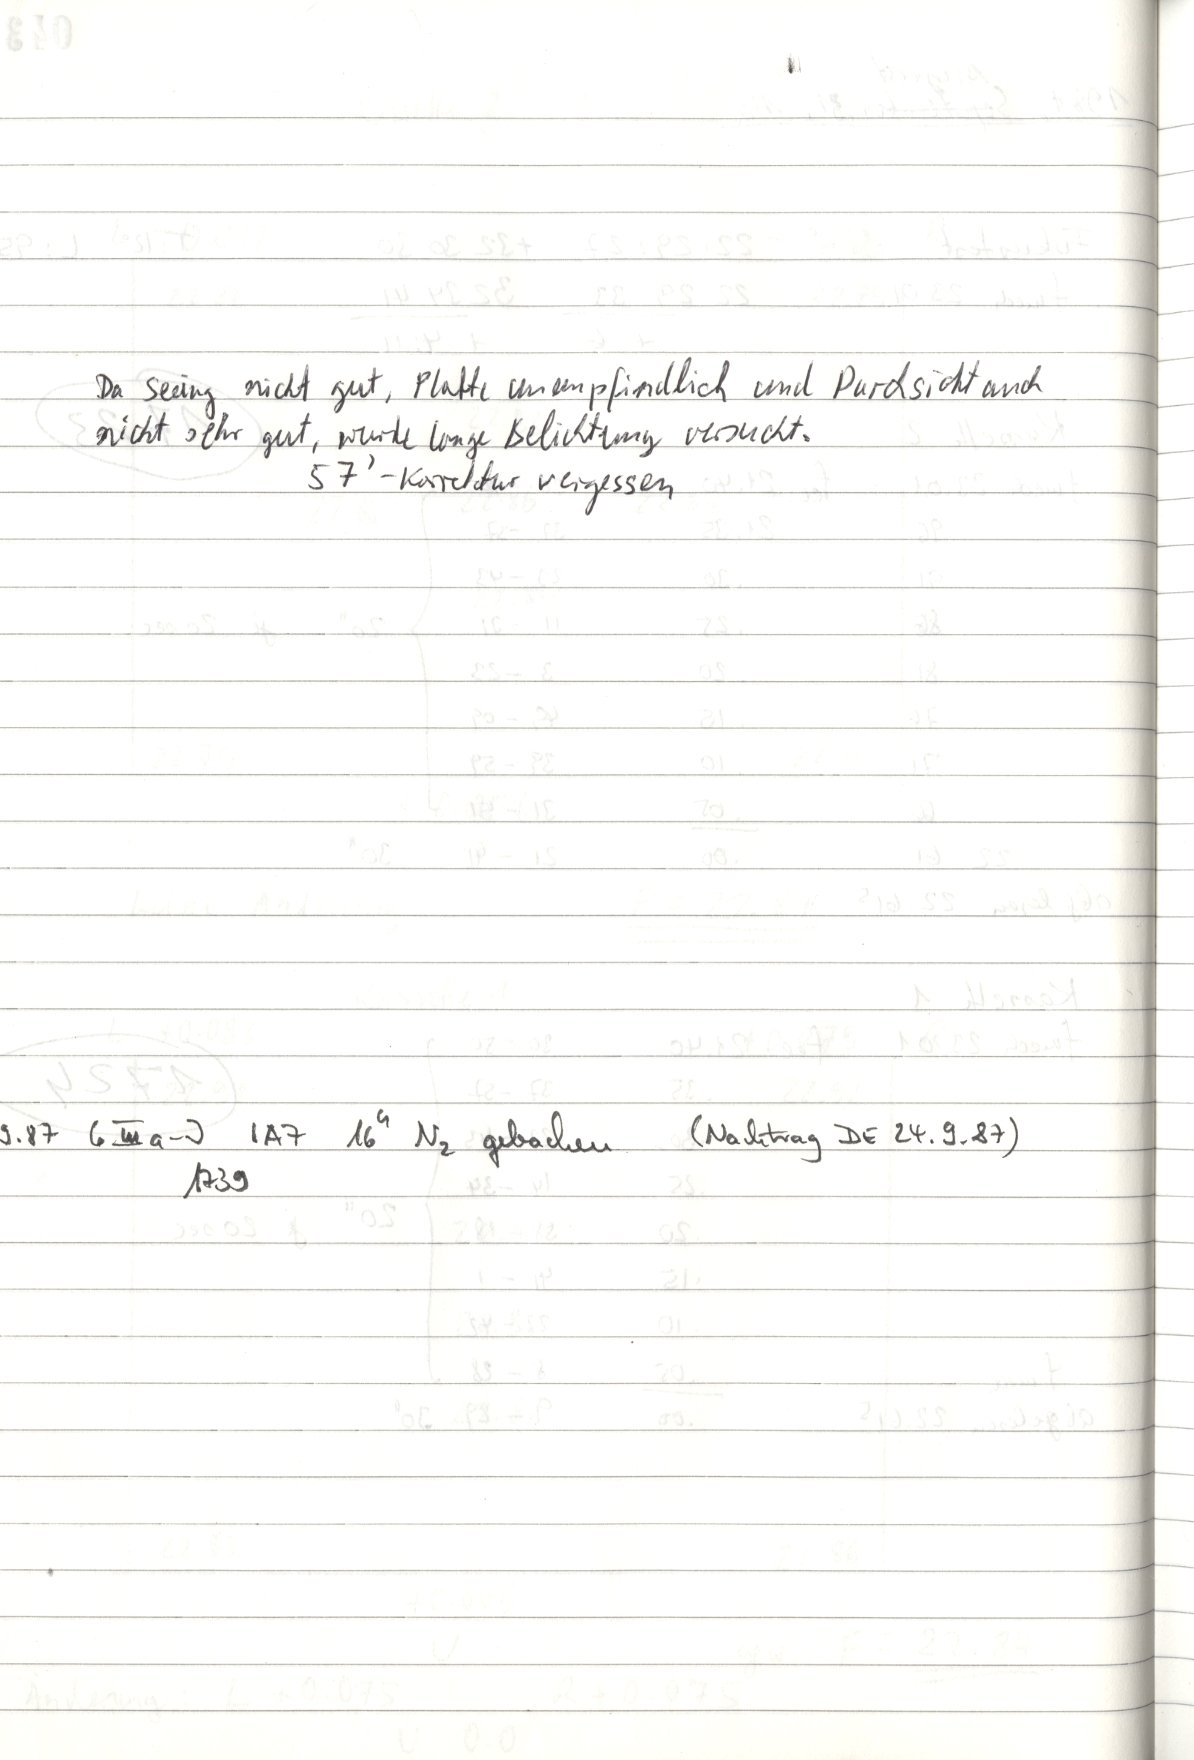 Da seeing nicht gut, Platte unempfindlich und Durchsicht auch
nicht sehr gut, wurde lange Belichtung versucht.
57'-Korrektur vergessen
9.87 6 IIIa-J 1A7 16h N2 gebacken (Nachtrag DE 24.9.87)
1739